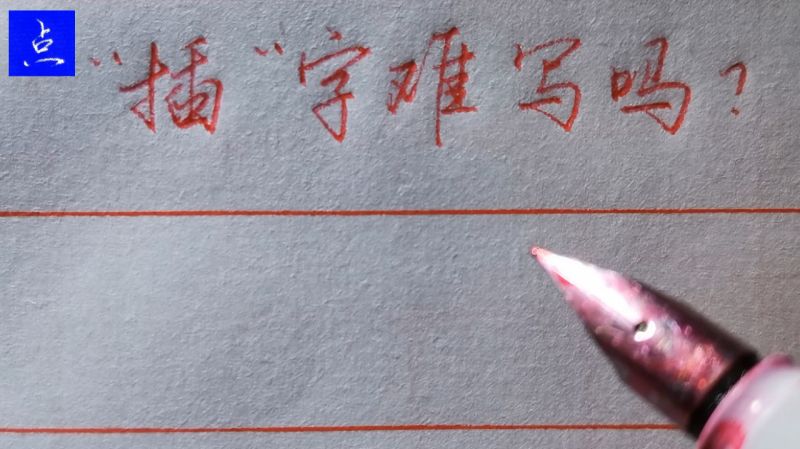 点
“插“字难写吗？